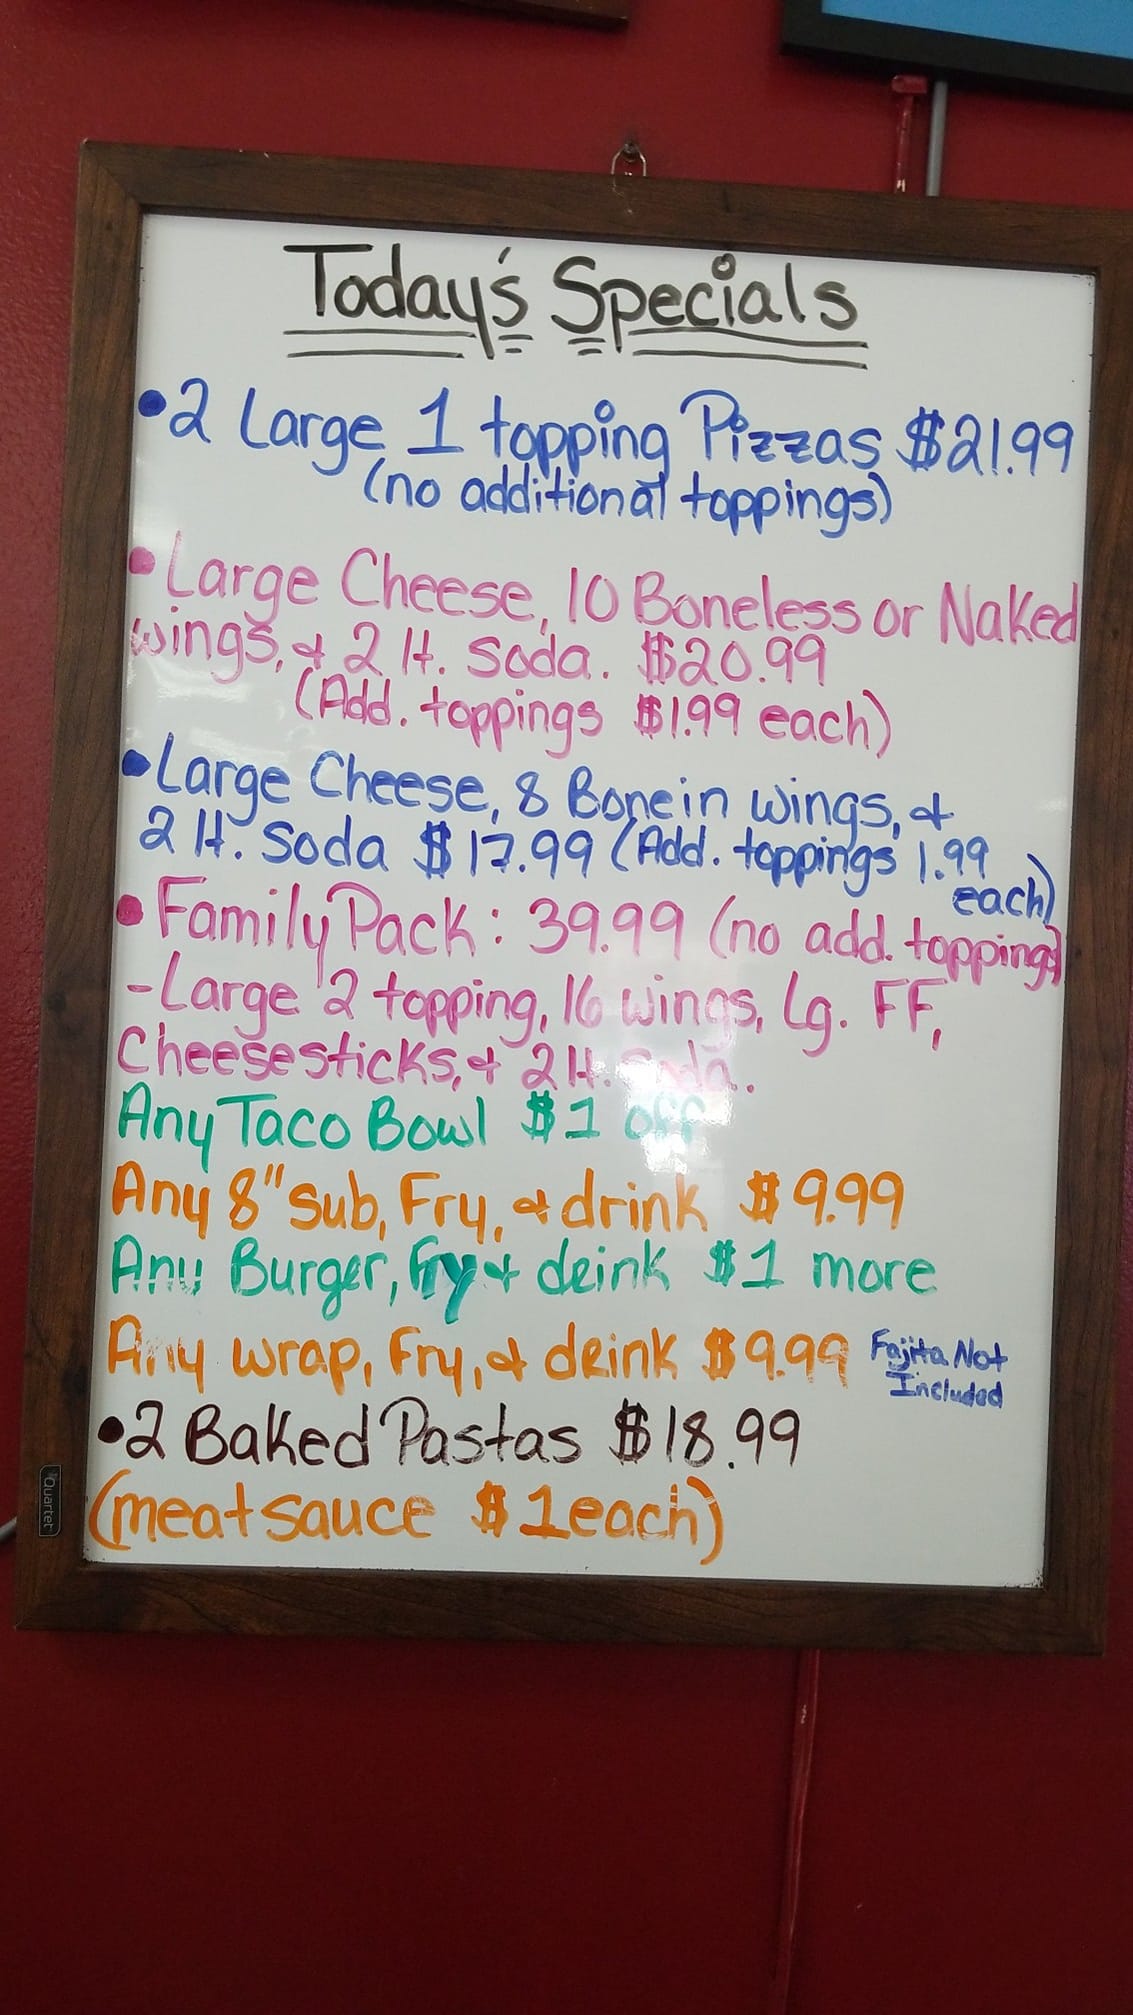 Today's Specials
•2 Large 1 topping Pizzas $21.99
(no additional toppings)
•Large Cheese, 10 Boneless or Naked
wings, & 2 lt. Soda. $20.99
(Add. toppings $1.99 each)
•Large Cheese, 8 Bonein wings, &
2 lt. Soda $17.99 (Add. toppings 1.99
each)
•Family Pack: 39.99 (no add. toppings)
-Large 2 topping, 16 wings, Lg. FF,
Cheesesticks, & 2 lt. Soda.
Any Taco Bowl $1 off
Any 8" Sub, Fry, & drink $9.99
Any Burger, Fry & drink $1 more
Any wrap, Fry, & drink $9.99 Fajita Not
Included
•2 Baked Pastas $18.99
(meat sauce $1 each)
Quartet